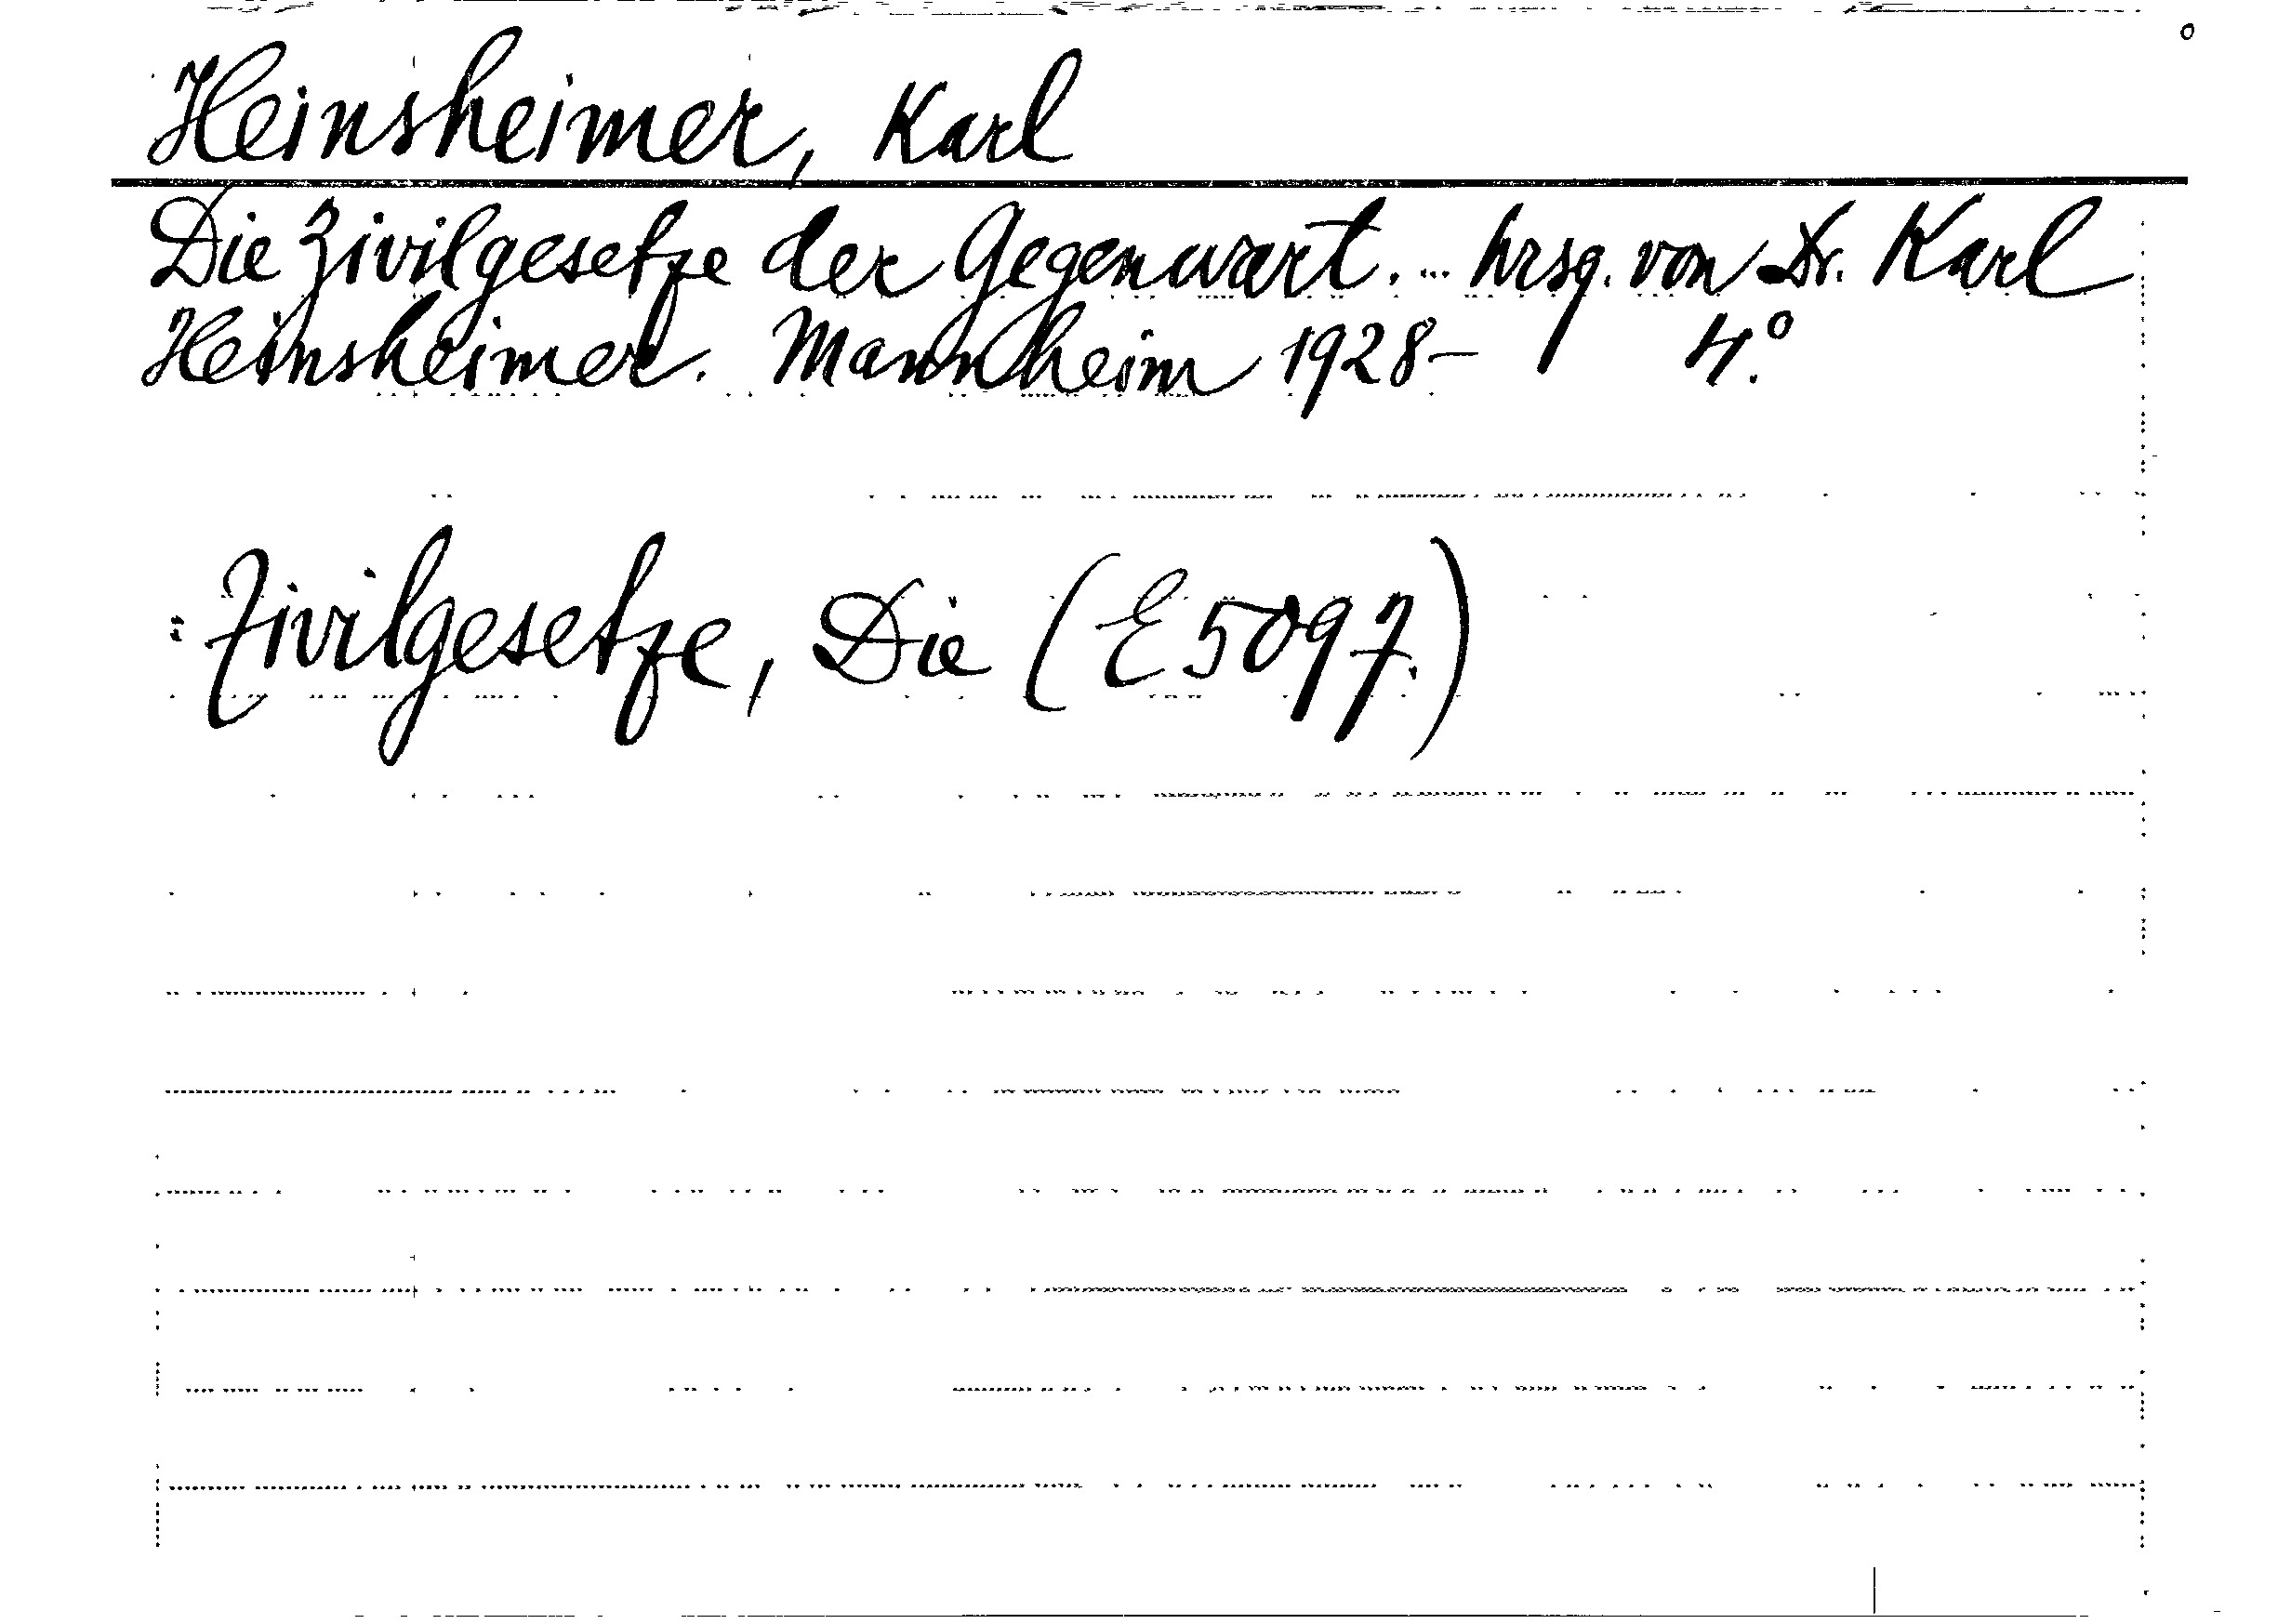 Heinsheimer, Karl
Die Zivilgesetze der Gegenwart. ... hrsg. von Dr. Karl
Heinsheimer. Mannheim 1928- 4.°
: Zivilgesetze, Die (E 5097.)